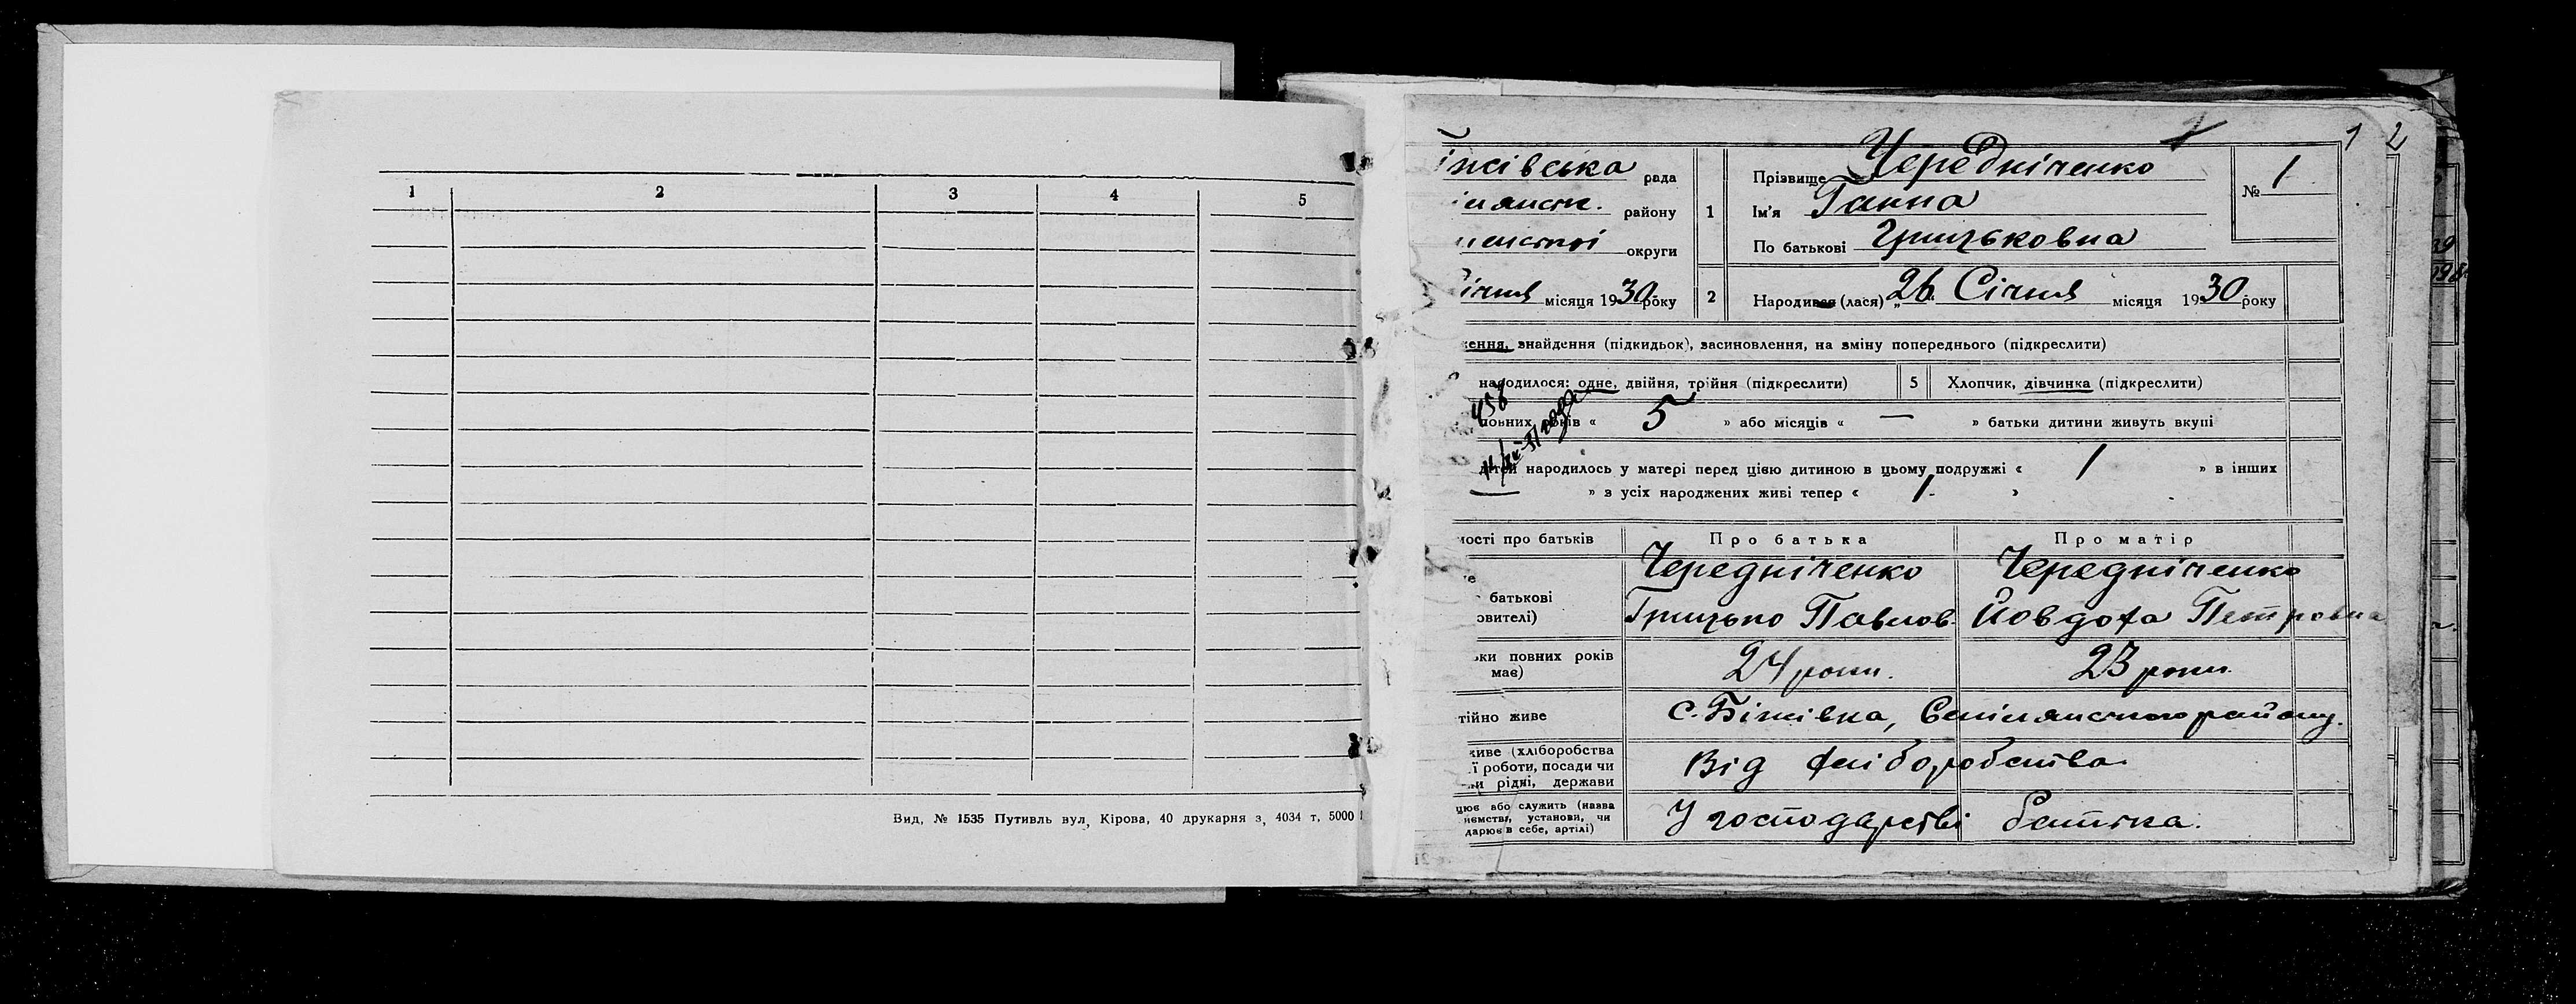 1 2 3 4 5
Вид, № 1535 Путивль вул, Кірова, 40 друкарня з, 4034 т, 5000
1 2
іжівська рада
району
округи
Січня місяця 1930 року
1
Прізвище Чередніченко
Ім'я Ганна
По батькові Грицьковна
№ 1
2
Народився (лася) „26" Січня місяця 1930 року
ення, знайдення (підкидьок), засиновлення, на зміну попереднього (підкреслити)
народилося: одне, двійня, трійня (підкреслити)
5 Хлопчик, дівчинка (підкреслити)
456
повних років « 5 » або місяців « — » батьки дитини живуть вкупі
дітей народилось у матері перед цією дитиною в цьому подружжі « 1 » в інших
» з усіх народжених живі тепер « 1 »
мості про батьків Про батька Про матір
батькові
овителі)
Чередніченко
Грицько Павлов.
Чередніченко
Йовдоха Петровна
ки повних років
має)
24 роки.
23 роки.
тійно живе с. Біжівка, Білілянського району.
живе (хліборобства
ї роботи, посади чи
и рідні, держави
Від хліборобства
цює або служить (назва
иємства, установи, чи
дарює в себе, артілі)
У господарстві батька.